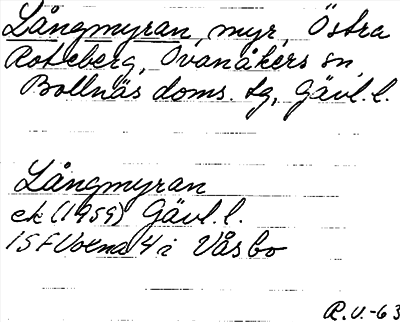 Långmyran, myr, Östra
Roteberg, Ovanåkers sn,
Bollnäs doms. tg, Gävl.l.
Långmyran
ek (1959) Gävl.l.
15F 4 i Våsbo
R.V.-63